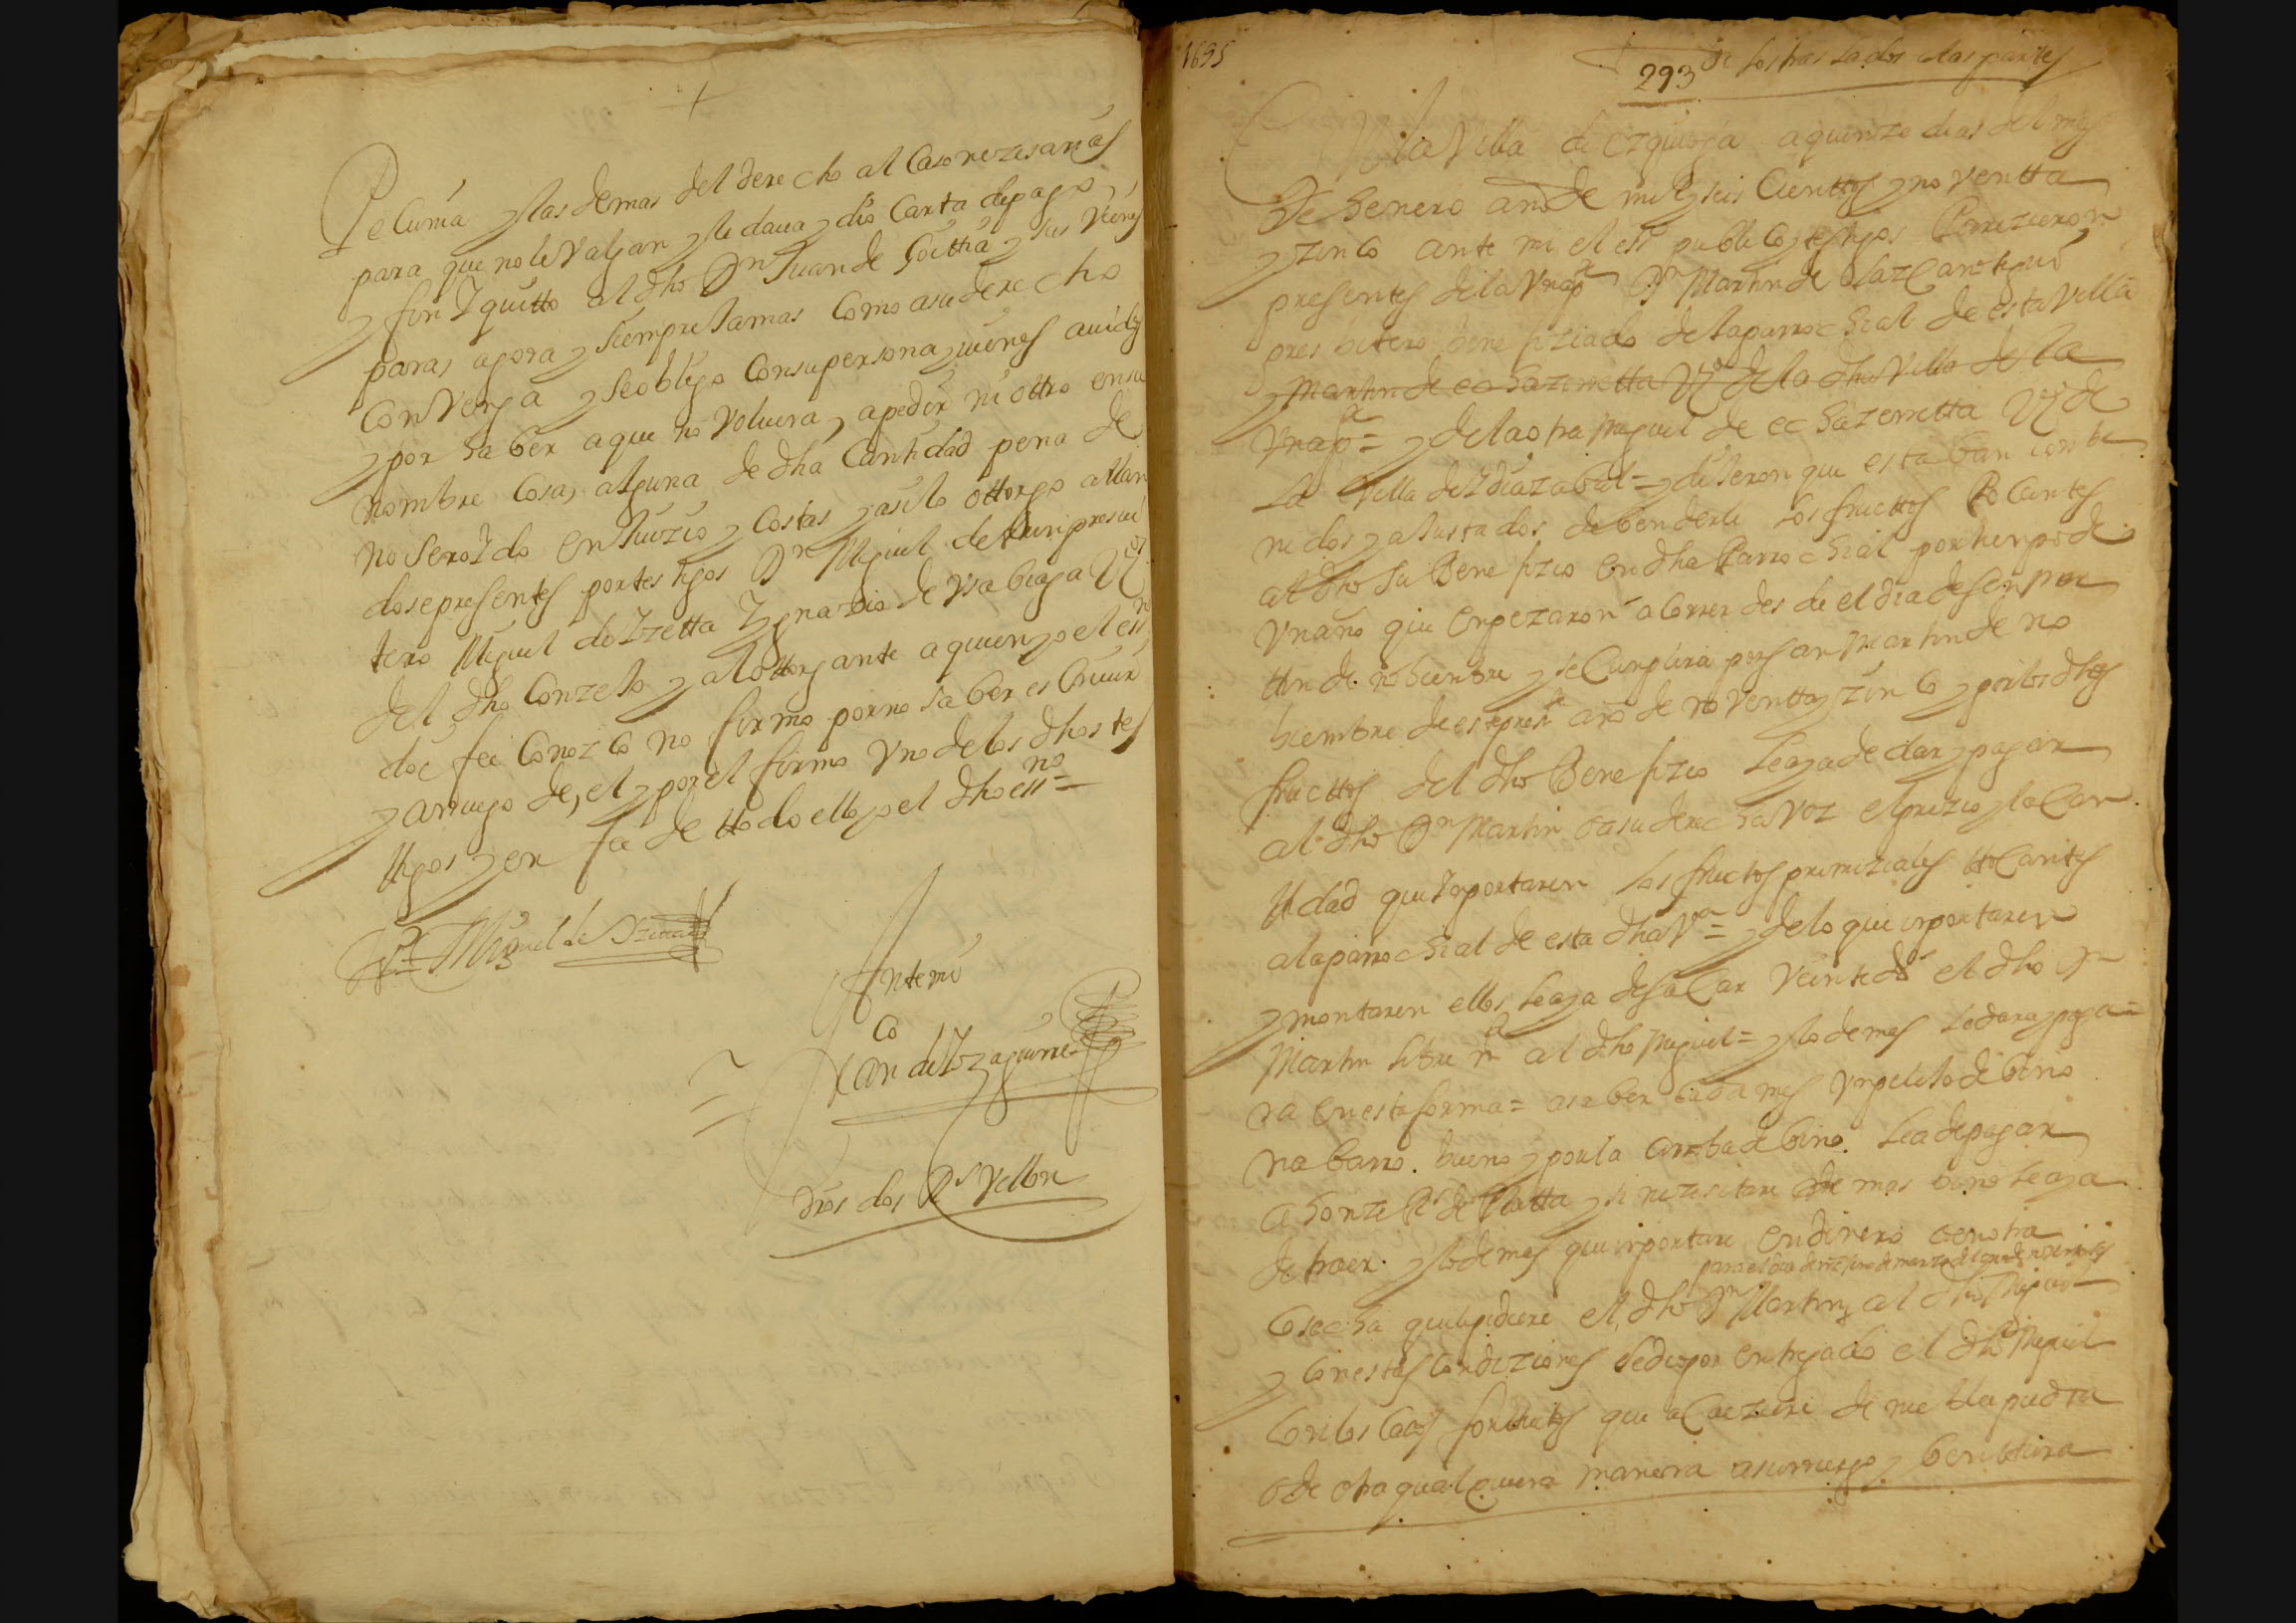 +
Pecunia y las demas del derecho al Caso nezesarias
para que no le Valgan y le daua y dio Carta de pago,
y fin y quitto al dho Dn Juan de Goittia y sus Vienes
paras agora y siempre Jamas Como a su derecho
Conbenga y se obligo Con su persona y uienes auidos
y por haber a que no Voluera, a pedir ni ottro en su
nombre Cosa, alguna de dha Cantidad pena de
no ser oydo en Juizio y Costas y asi lo ottorgo allan
dose presentes por testigos Dn Miguel de presui
tero Miguel de Yzetta Ygnazio de Vsabiaga Vzos
del dho Conzejo y al ottorgante a quien yo el essno
doi fee Conozco no firmo por no saber escriuir
y a rruego de, el y por el firmo Vno de los dhos tes
ttigos y en fee de ttodo ello yo el dho essno =
Miguel de Yzetta
Antemi
Co
Juan de Yzaguirre
Dros dos Rs Vellon
1695
293
Di los tras lados a las partes
En la Villa de ezquioga a quinze dias del mes
De henero año de mil y seis Cienttos y noventta
y zinco ante mi el essno publico y testigos Parezieron
presentes de la Vna pte Dn Martin de Lazcanotegui
presbitero benefiziado de la parrochial de esta Villa
y Martin de echazerretta Vzo de la dha Villa de la
Vna pte = y de la otra Miguel de echazerretta Vzo de
la Villa de Ydiazabal = y dijeron que estaban conbe
nidos y ajustados de benderle los fructtos tocantes
al dho su Benefizio en dha Parrochial por tienpo de
Vn año que enpezaron a Correr desde el dia de san mar
ttin de nobienbre y se Cunplira por san Martin de no
biembre de este preste año de noventta y zinco y por los dhos
fructtos del dho Benefizio le aya de dar y pagar
al dho Dn Martin o a su derecha voz el prezio y la Can
ttidad que Ynportaren los fructos primiziales ttocantes
a la parrochial de esta dha Va = y de lo que inportaren
y montaren ellos le aya de saCar Veinte ds el dho Dn
Martin libre mte al dho Miguel = y lo demas le dara y paga =
ra en esta forma = a saber cada mes Vn pelejo de bino
nabarro bueno y por la arroba de bino le a de pagar
a honze Rs de Platta y si nezesitare de mas bino le aya
de traer y lo demas que inportare en dinero o en otra
para el dia de fin de marzo de
Cosecha que le pidiere el dho Dn Martin al dho Miguel
y con estas Condiziones se dio por entregado el dho Miguel
Con los Casos fortuitos que aCaezieri de nieblapiedra
o de otra qualquiera manera a su rriesgo y benttura